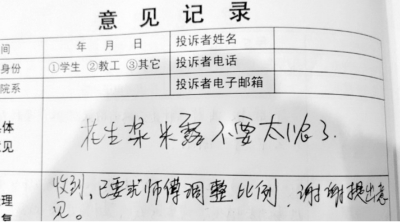 意见记录
间 年 月 日 投诉者姓名
身份 ①学生 ②教工 ③其它 投诉者电话
院系 投诉者电子邮箱
体
意见
花生浆米露不要太浓了.
理
复
收到,已要求师傅调整比例,谢谢提出意
见。